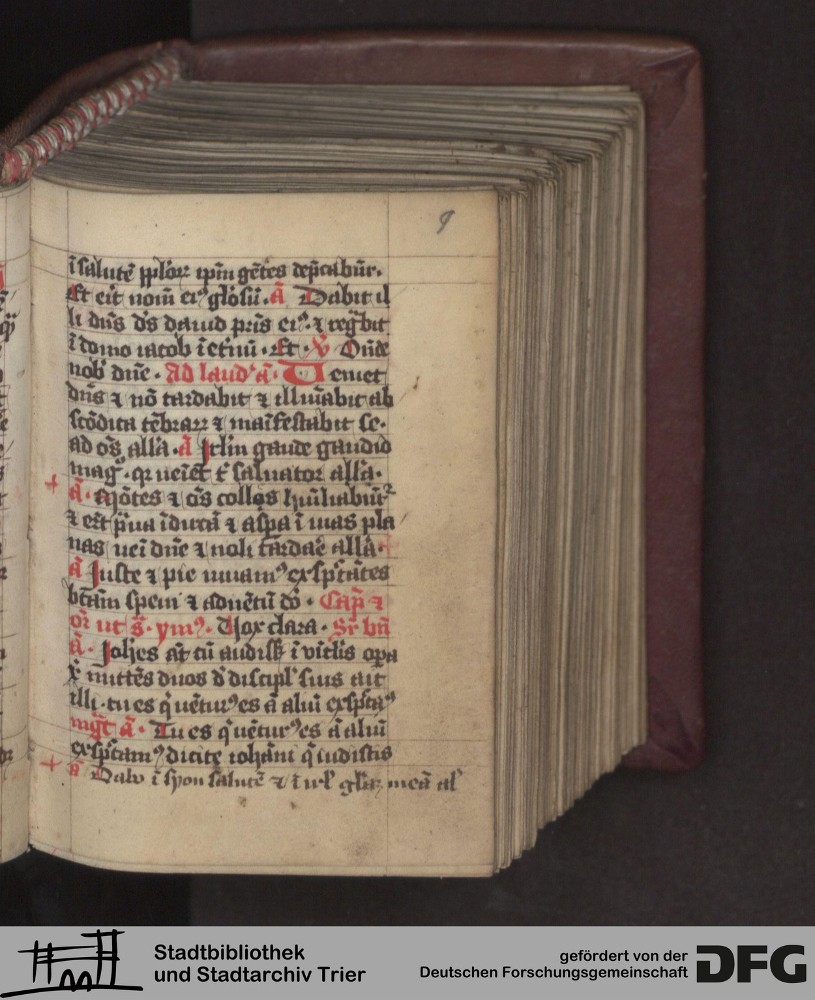 9
ī salutē pplōꝝ ipm̄ gētes dep̄cabūr.
Et eīt nom̄ eiꝰ glosū. a᷃ Dabit il
li dn̄s ds̄ dauid pris̄ eiꝰ. ⁊ regb̄it
ī domo iacob ī etnū. Et. ꝟ Oñde
nob̄ dn̄e. Ad laud' a᷃. Ueniet
dn̄s ⁊ nō tardabit ⁊ illuīabit ab
scōdita tēbraꝝ ⁊ maīfestabit se.
ad os̄ all̄a. a᷃ Jrl̄m gaude gaudio
mag°. qꝛ ueiēt t' saluator all̄a.
a᷃. Mōtes ⁊ os̄ colles huīliabūt
⁊ eīt p̄ua ī dircā ⁊ asp̄a ī uias pla
nas uei dn̄e ⁊ noli tardaē all̄a.
a᷃ Juste ⁊ pie uiuamꝰ exsp̄tātes
btām spem ⁊ aduētū dō. Cap̄ ⁊
or̄ ut s̄. ymꝰ. Uox clara. Sr̄ bn̄
a᷃. Joh̄es at̄ cū audiss̄ ī vīclis oꝑa
x̄ mittēs duos d' discipl' suis ait
illi. tu es q' uētur'ꝰ es a᷃ aliū exsp̄taꝰ
mgt̄ a᷃. Tu es q' uētur'ꝰ es a᷃ aliū
exsp̄tamꝰ dicite ioh̄ani q̄ uidistis
a᷃ Dabo ī syon salutē ⁊ ī irl̄ gl̄iaꝫ meā al'
Stadtbibliothek
und Stadtarchiv Trier
gefördert von der
Deutschen Forschungsgemeinschaft
DFG